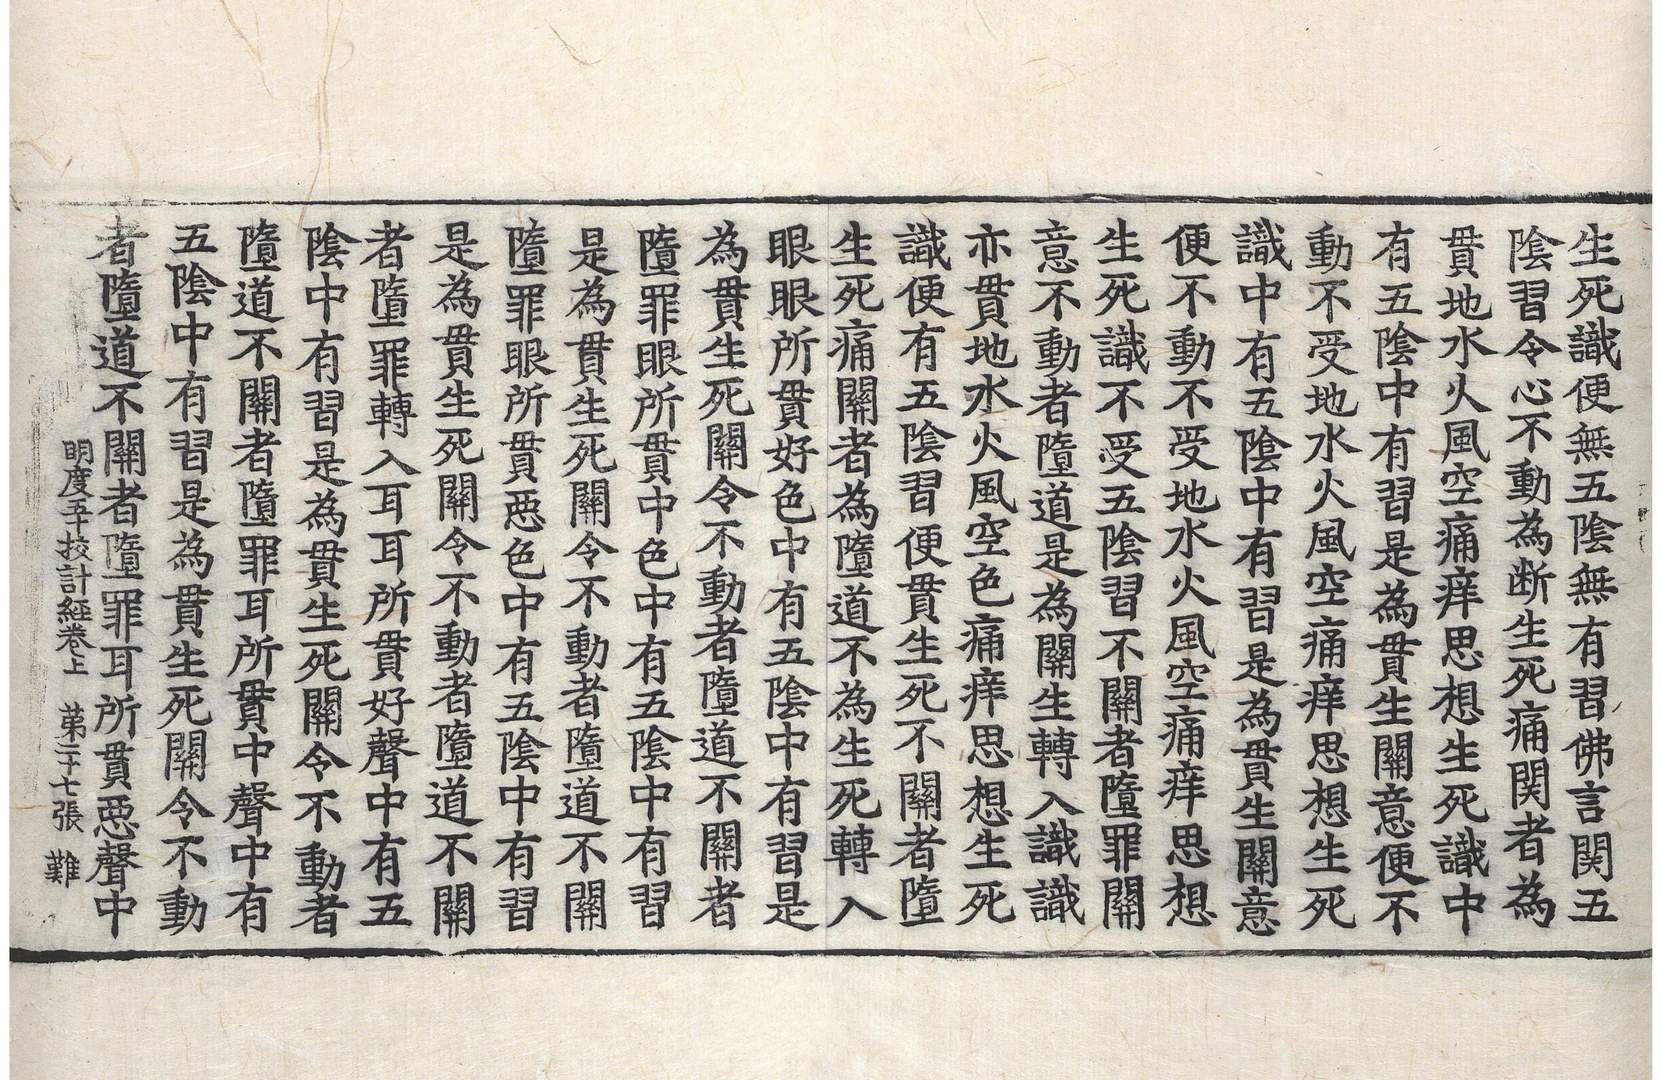 生死識便無五陰無有習佛言関五
陰習令心不動為断生死痛関者為
貫地水火風空痛痒思想生死識中
有五陰中有習是為貫生關意便不
動不受地水火風空痛痒思想生死
識中有五陰中有習是為貫生關意
便不動不受地水火風空痛痒思想
生死識不受五陰習不關者墮罪關
意不動者墮道是為關生轉入識識
亦貫地水火風空色痛痒思想生死
識便有五陰習便貫生死不關者墮
生死痛關者為墮道不為生死轉入
眼眼所貫好色中有五陰中有習是
為貫生死關令不動者墮道不關者
墮罪眼所貫中色中有五陰中有習
是為貫生死關令不動者墮道不關
墮罪眼所貫悪色中有五陰中有習
是為貫生死關令不動者墮道不關
者墮罪轉入耳耳所貫好聲中有五
陰中有習是為貫生死關令不動者
墮道不關者墮罪耳所貫中聲中有
五陰中有習是為貫生死關令不動
者墮道不關者墮罪耳所貫悪聲中
明度五十挍計經卷上 第二十七張 難